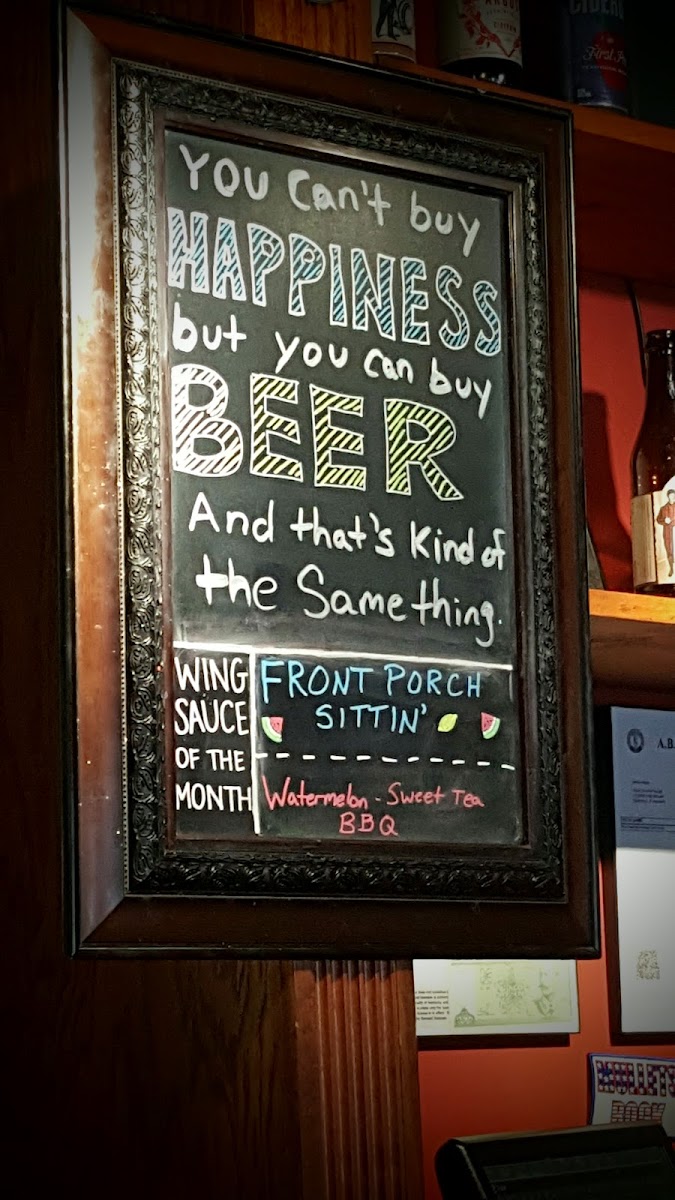 You Can't buy
HAPPINESS
but you can buy
BEER
And that's Kind of
the Same thing.
WING
SAUCE
OF THE
MONTH
FRONT PORCH
SITTIN'
Watermelon - Sweet Tea
BBQ
First
A.B.
MULLETS
ROCK